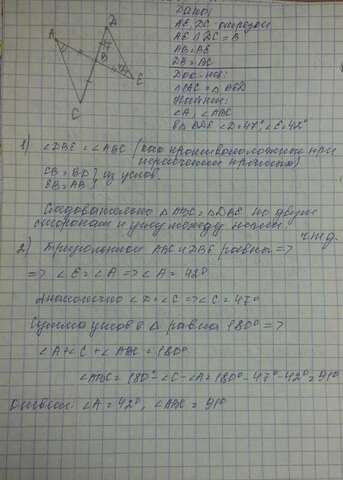 Дано:
AE, DC отрезки
AE ∩ DC = B
AB = BE
DB = BC
Док-ть:
Найти:
∠A, ∠ABC
в △ BDE ∠D = 47°, ∠E = 42°
A
D
B
E
C
1) ∠DBE = ∠ABC (как противоположные при
пересечении прямых)
CB = BD } из услов.
EB = AB
Следовательно △ ABC = △ DBE по двум
сторонам и углу между ними
ч.т.д.
2) Треугольники ABC и DBE равны =>
=> ∠E = ∠A => ∠A = 42°
Аналогично ∠D = ∠C => ∠C = 47°
Сумма углов в △ равна 180° =>
∠A + ∠C + ∠ABC = 180°
∠ABC = 180° - ∠C - ∠A = 180° - 47° - 42° = 91°
Ответ: ∠A = 42°, ∠ABC = 91°